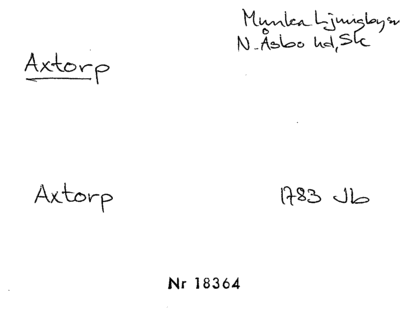 Munka Ljungby sn
N. Åsbo hd, Sk
Axtorp
Axtorp 1783 Jb
Nr 18364